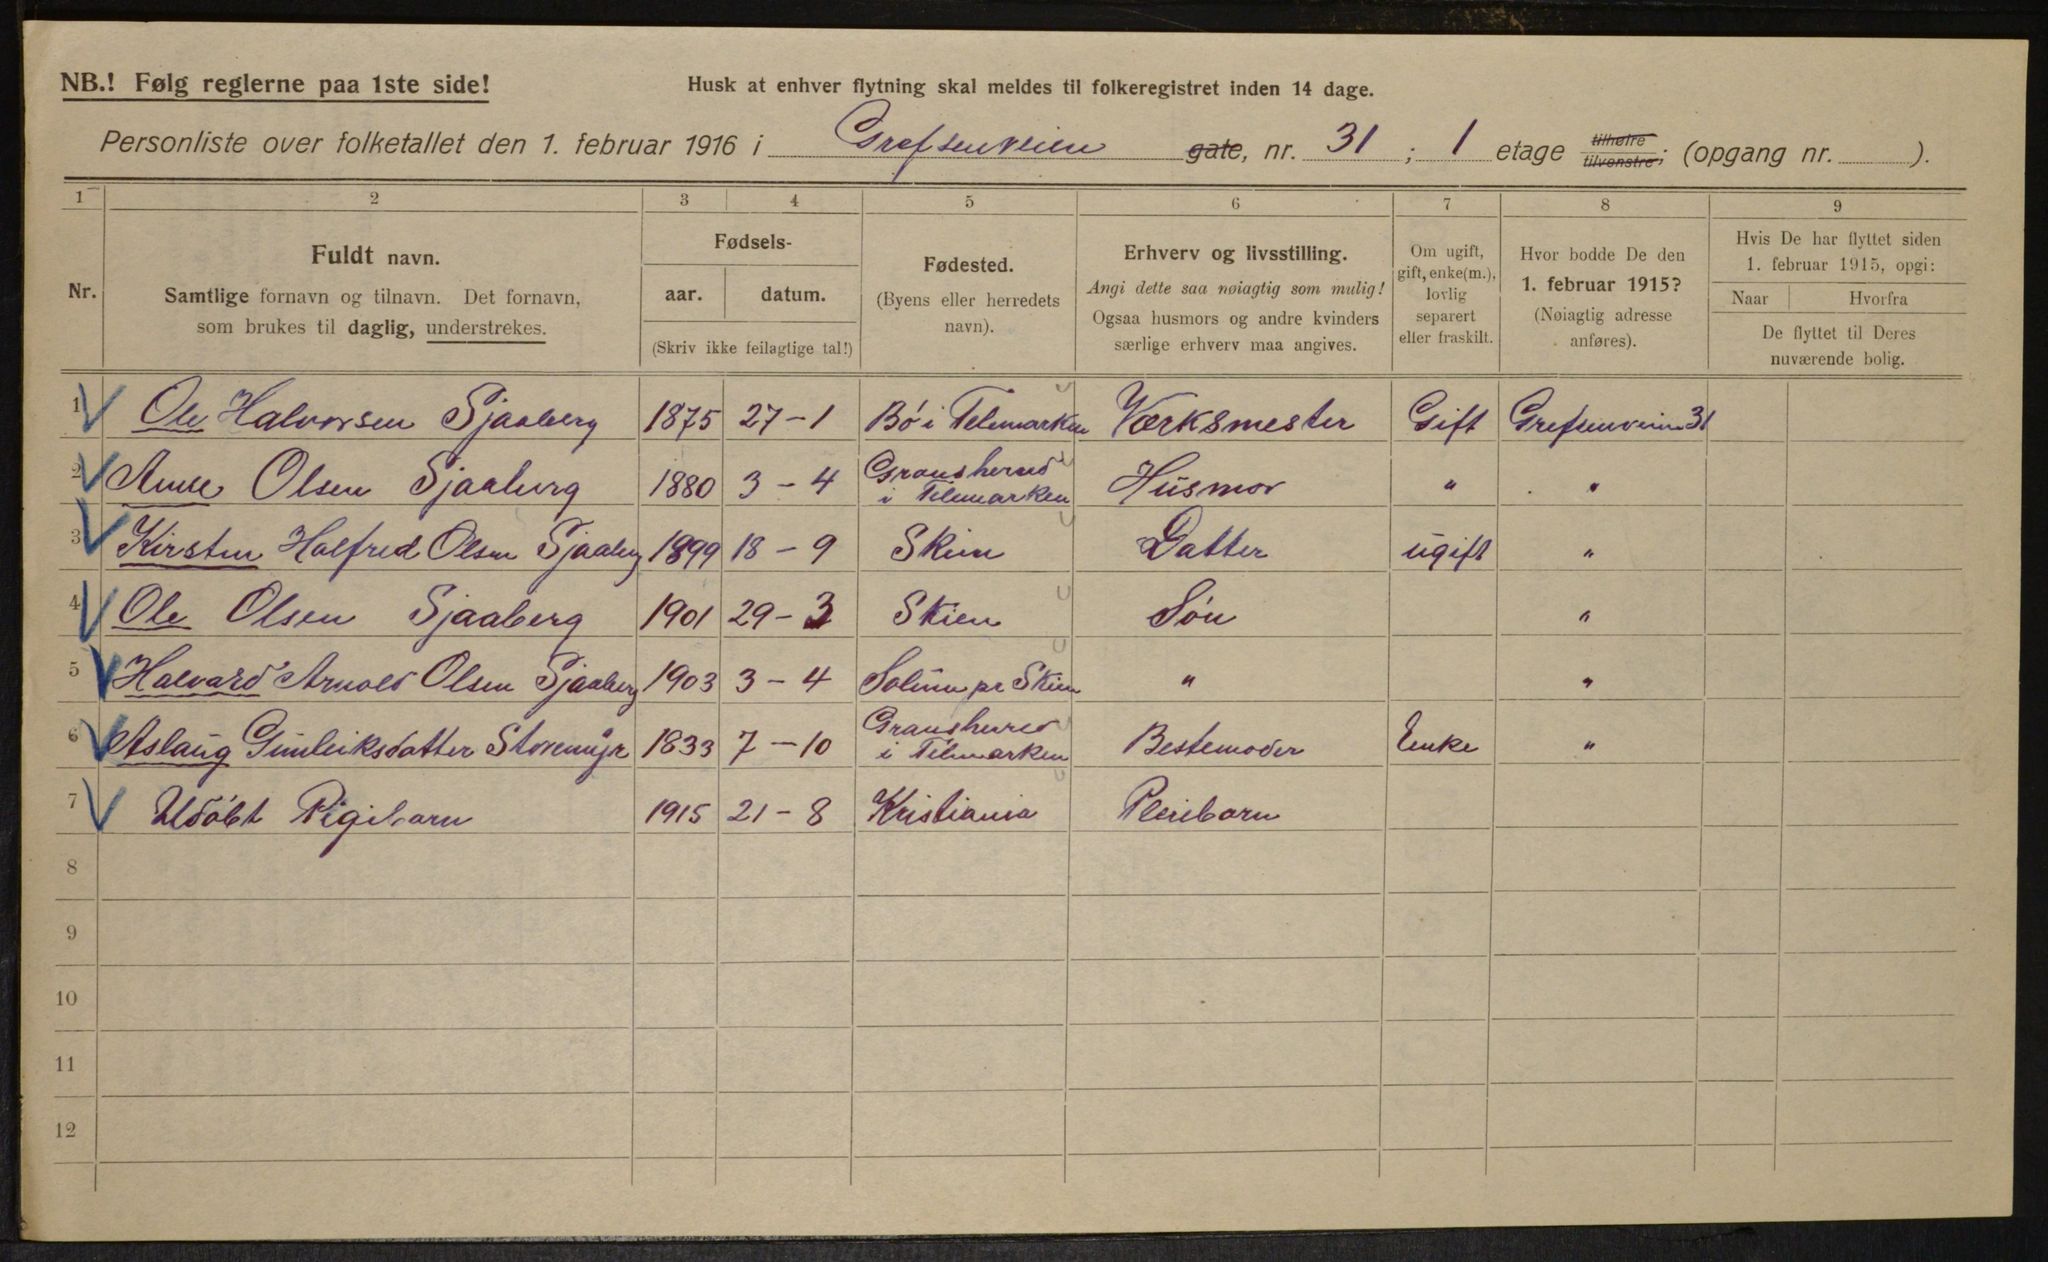 NB.! Følg reglerne paa 1ste side!
Husk at enhver flytning skal meldes til folkeregistret inden 14 dage.
Personliste over folketallet den 1. februar 1916 i Grefsenveien gate, nr. 31 ; 1 etage tilhøire tilvenstre; (opgang nr. ).
1 2 3 4 5 6 7 8 9
Nr.
Fuldt navn.
Samtlige fornavn og tilnavn. Det fornavn,
som brukes til daglig, understrekes.
Fødsels-
aar. datum.
(Skriv ikke feilagtige tal!)
Fødested.
(Byens eller herredets
navn).
Erhverv og livsstilling.
Angi dette saa nøiagtig som mulig!
Ogsaa husmors og andre kvinders
særlige erhverv maa angives.
Om ugift,
gift, enke(m.),
lovlig
separert
eller fraskilt.
Hvor bodde De den
1. februar 1915?
(Nøiagtig adresse
anføres).
Hvis De har flyttet siden
1. februar 1915, opgi:
Naar Hvorfra
De flyttet til Deres
nuværende bolig.
1 Ole Halvorsen Sjaaberg 1875 27-1 Bø i Telemarken Værksmester Gift Grefsenveien 31
2 Anne Olsen Sjaaberg 1880 3-4 Gransherred i Telemarken Husmor " "
3 Kirsten Halfred Olsen Sjaaberg 1899 18-9 Skien Datter ugift "
4 Ole Olsen Sjaaberg 1901 29-3 Skien Søn "
5 Halvard Arnold Olsen Sjaaberg 1903 3-4 Solum pr Skien " "
6 Aslaug Gunleiksdatter Storemyr 1833 7-10 Gransherred i Telemarken Bestemoder Enke "
7 Udøbt Pigebarn 1915 21-8 Kristiania Pleiebarn
8
9
10
11
12